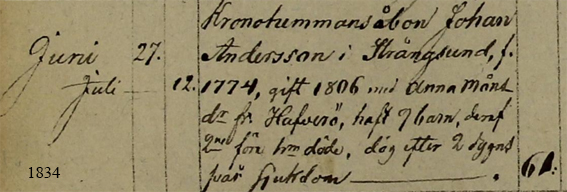 Kronohemmansåbon Johan
Juni 27. Andersson i Strängsund, f.
Juli — 12. 1774, gift 1806 med Anna Månsd
dr fr. Hafverö, haft 7 barn, deraf
2ne före hm döde, dog efter 2 dygns
pass Sjukdom — . 61.
1834